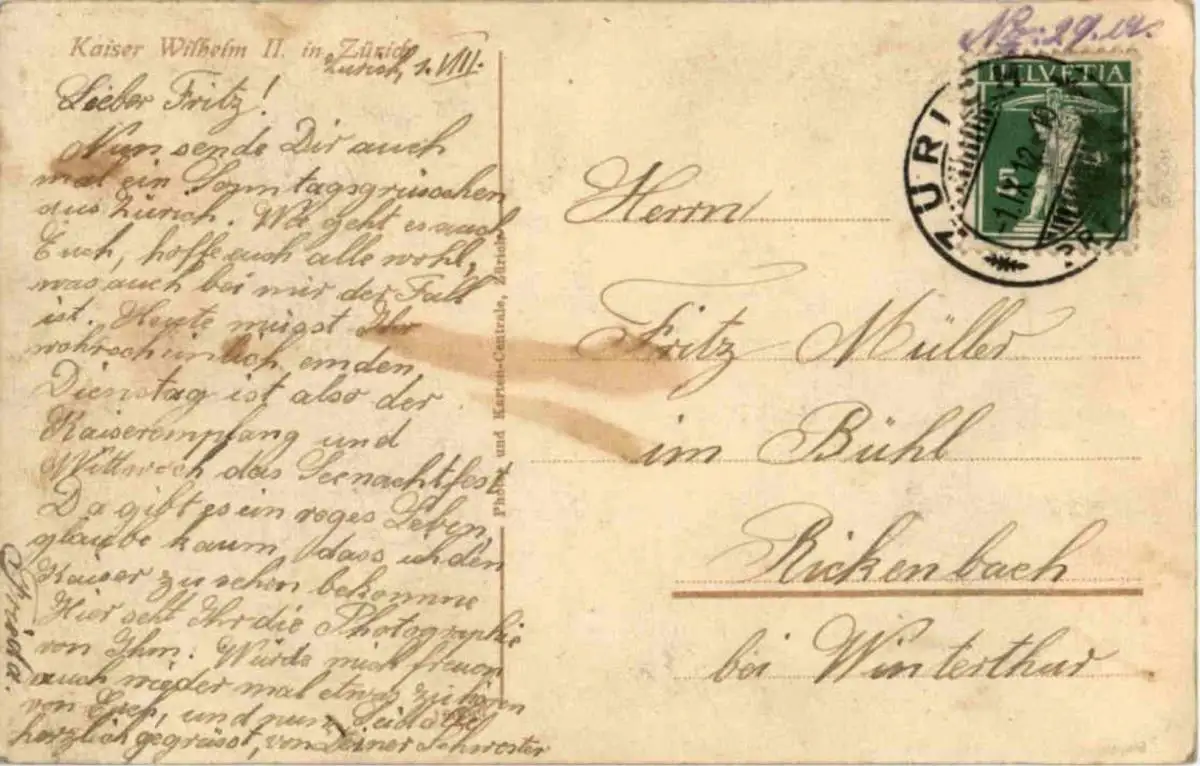 Kaiser Wilhelm II. in Zürich
Zürich, 1. VIII.
Lieber Fritz!
Nun sende Dir auch
mal ein Sonntagsgrüsschen
aus Zürich. Wie geht es auch
Euch, hoffe auch alle wohl,
was auch bei mir der Fall
ist. Heute müsst Ihr
wahrscheinlich emden,
Dienstag ist also der
Kaiserempfang und
Mittwoch das Seenachtfest
Da gibt es ein reges Leben,
glaube kaum, dass ich den
Kaiser zu sehen bekomme
Hier seht Ihr die Photographie
von Ihm. Würde mich freuen
auch wieder mal etwas zu hören
von Euch, und nun seid alle
herzlich gegrüsst, von Deiner Schwester
Frieda.
Photo und Karten-Centrale, Zürich
No. 29.
HELVETIA
5
ZÜRI
-1.IX.12
Herrn
Fritz Müller
im Bühl
Rickenbach
bei Winterthur